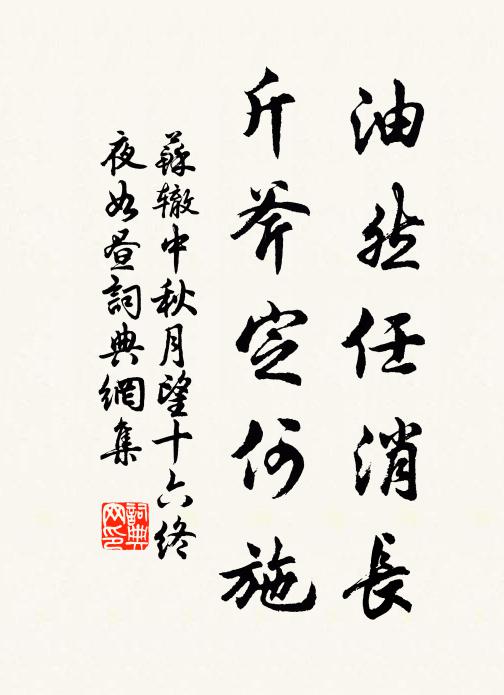 油然任消長
斤斧定何施
蘇辙中秋月望十六終
夜如晝詞典網集
詞典网印